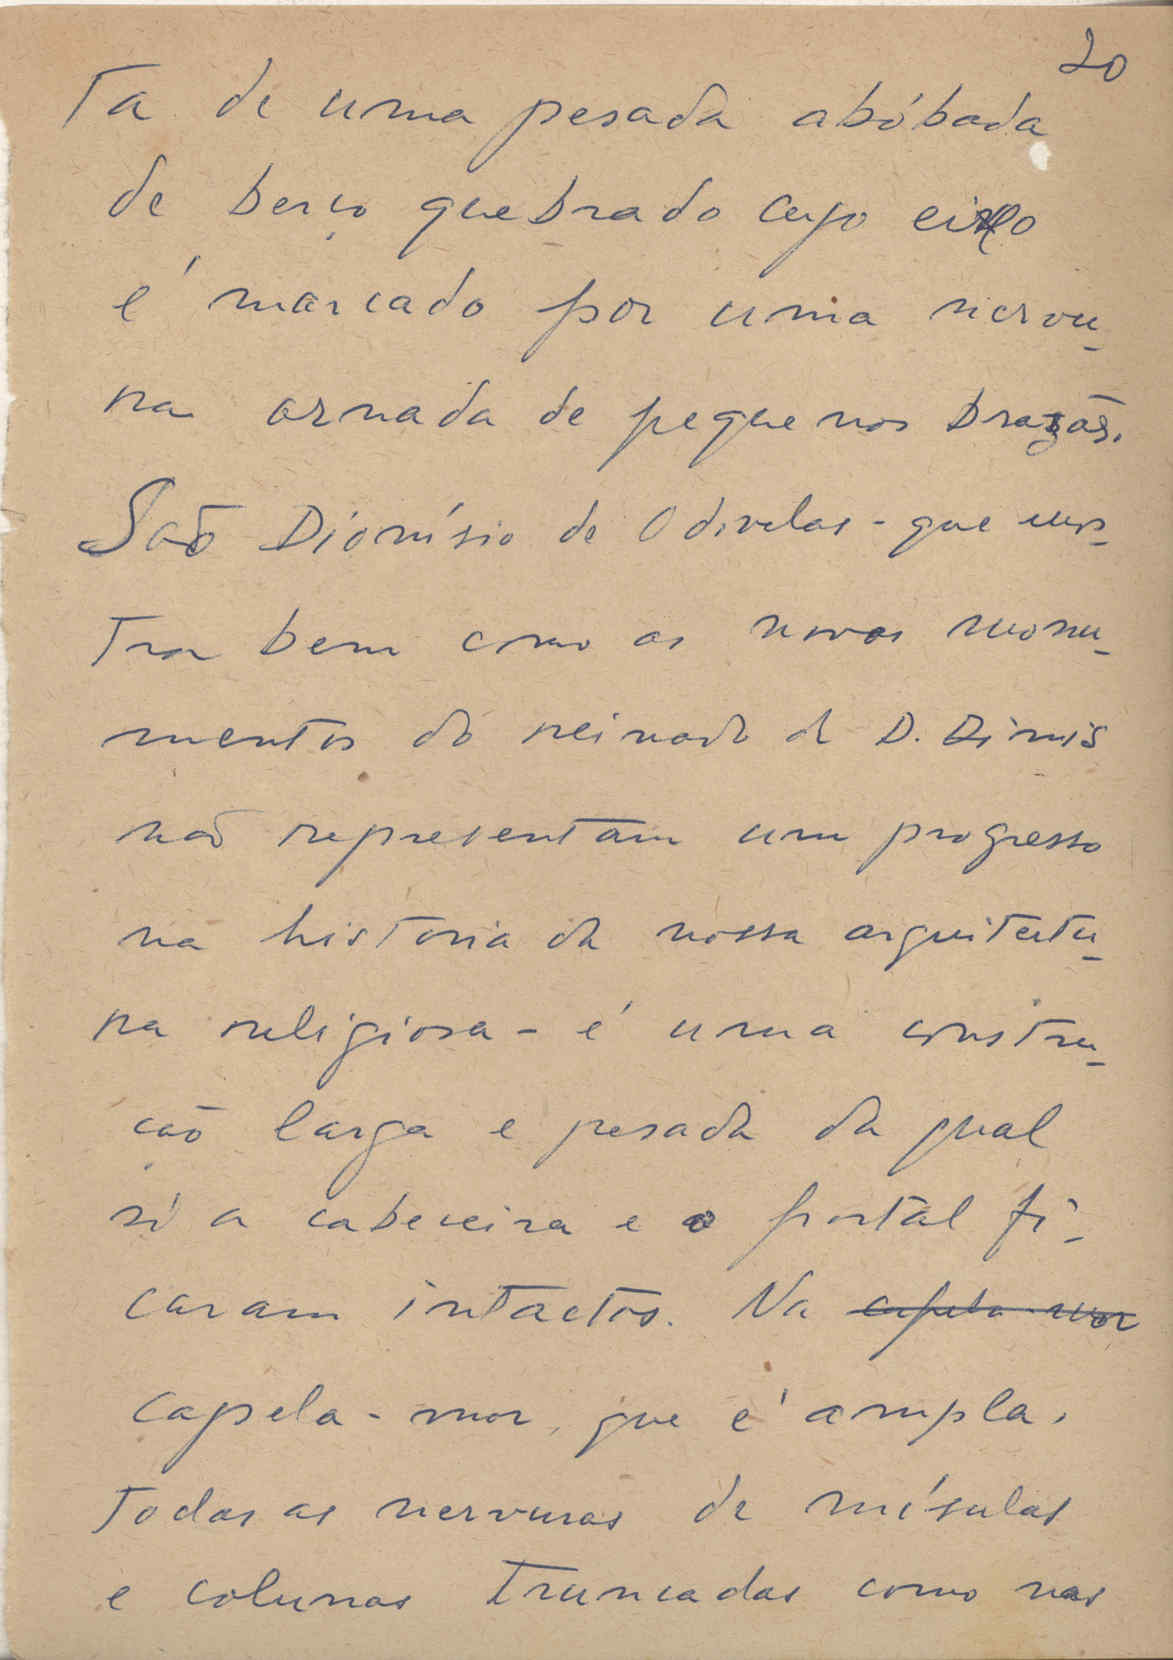 20
ta de uma pesada abóbada
de berço quebrado cujo eixo
é marcado por uma nervu-
ra ornada de pequenos brazões.
São Dionísio de Odivelas - que mos-
tra bem como os novos monu-
mentos do reinado de D. Diniz
não representam um progresso
na historia da nossa arquitectu-
ra religiosa - é uma constru-
ção larga e pesada da qual
só a cabeceira e o portal fi-
caram intactos. Na capela-mor
capela-mor, que é ampla,
todas as nervuras de mísulas
e colunas truncadas como nas